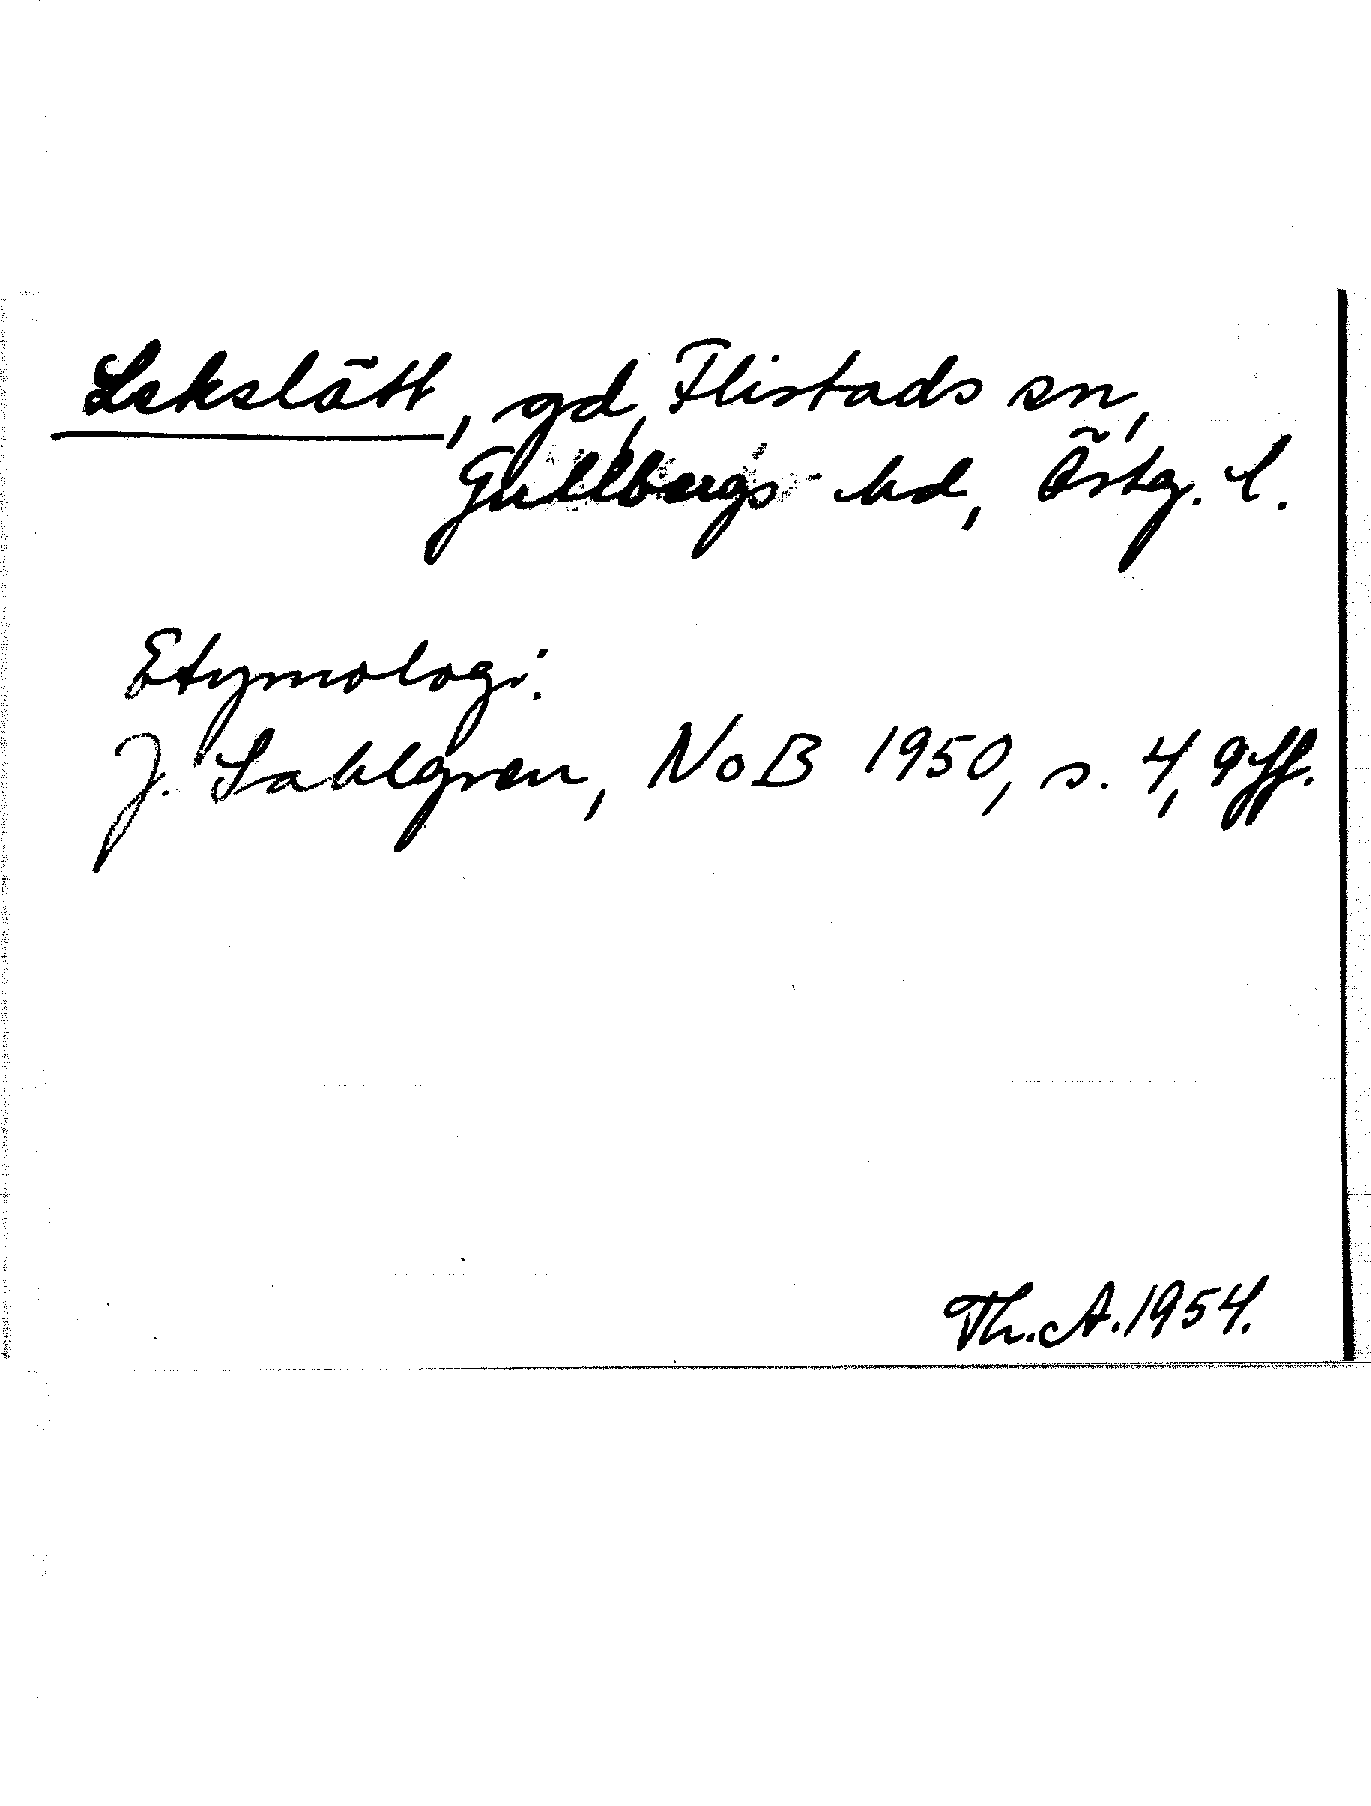 Lekslätt, gd, Flistads sn,
Gullbergs hd, Östg. l.
Etymologi.
J. Sahlgren, NoB 1950, s. 4, 9ff.
Th. A. 1954.